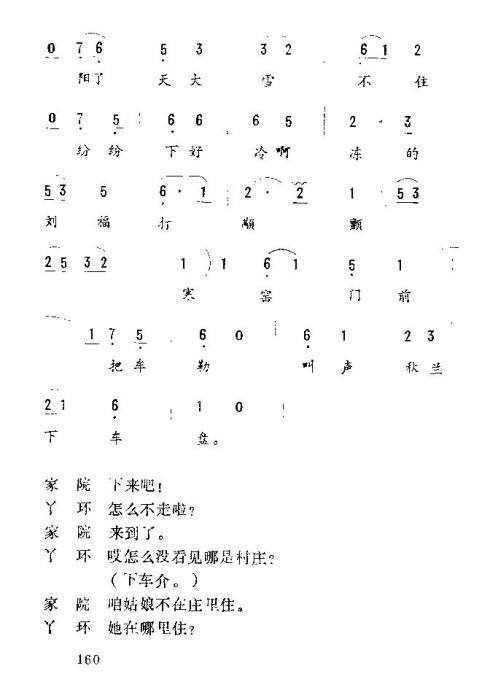 0 7 6 5 3 3 2 6 1 2
阳了 天 大 雪 不 住
0 7 5 6 6 6 5 2 · 3
纷 纷 下 好 冷 啊 冻 的
5 3 5 6 · 1 2 · 2 1 5 3
刘 福 打 颠 颤
2 5 3 2 1 1 6 1 5 1
寒 窑 门 前
1 7 5 6 0 6 1 2 3
把 车 勒 叫 声 秋 兰
2 1 6 1 0
下 车 盘。
家 院 下来吧!
丫 环 怎么不走啦?
家 院 来到了。
丫 环 哎怎么没看见哪是村庄?
(下车介。)
家 院 咱姑娘不在庄里住。
丫 环 她在哪里住?
160